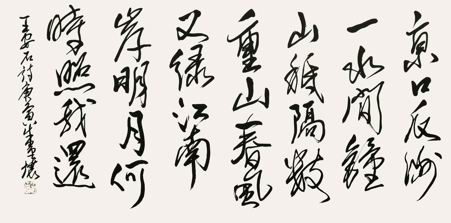 京口瓜洲
一水間鐘
山祇隔数
重山春風
又緑江南
岸明月何
時照我還
王安石詩庚寅